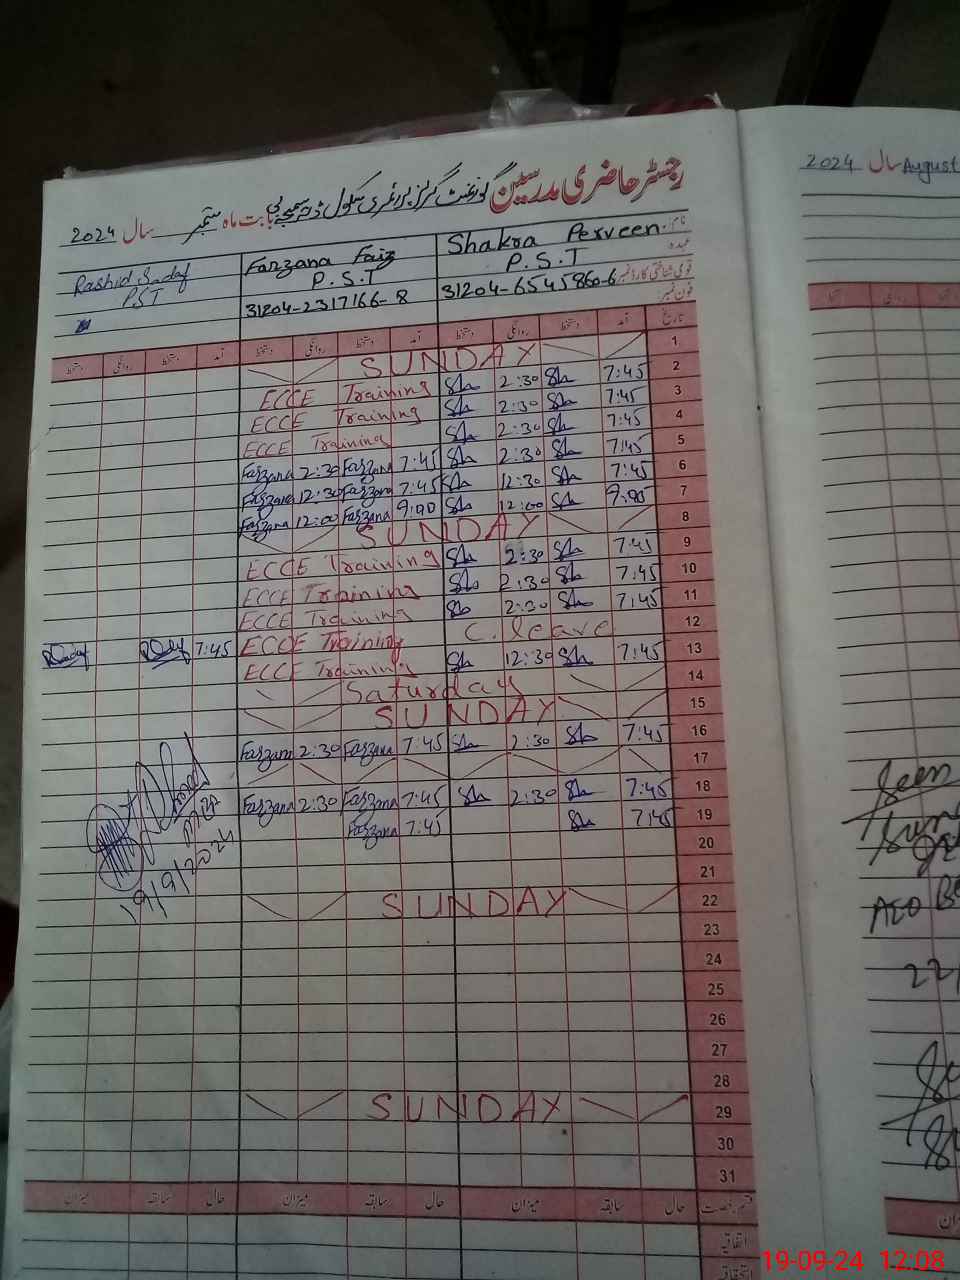 رجسٹر حاضری مدرسین گورنمنٹ گرلز پرائمری سکول
بابت ماہ ستمبر سال 2024
نام: Shakra Perveen Farzana Faiz Rashid Sadaf
عہدہ P.S.T P.S.T PST
قومی شناختی کارڈ نمبر 31204-6545860-6 31204-2317166-8
فون نمبر:
تاریخ آمد دستخط روانگی دستخط آمد دستخط روانگی دستخط آمد دستخط روانگی دستخط
1 SUNDAY
2 7:45 Sha 2:30 Sha ECCE Training
3 7:45 Sha 2:30 Sha ECCE Training
4 7:45 Sha 2:30 Sha ECCE Training
5 7:45 Sha 2:30 Sha 7:45 Farzana 2:30 Farzana
6 7:45 Sha 12:30 Sha 7:45 Farzana 12:30 Farzana
7 9:00 Sha 12:00 Sha 9:00 Farzana 12:00 Farzana
8 SUNDAY
9 7:45 Sha 2:30 Sha ECCE Training
10 7:45 Sha 2:30 Sha ECCE Training
11 7:45 Sha 2:30 Sha ECCE Training
12 C. leave ECCE Training 7:45
13 7:45 Sha 12:30 Sha ECCE Training
14 Saturday
15 SUNDAY
16 7:45 Sha 2:30 Sha 7:45 Farzana 2:30 Farzana
17
18 7:45 Sha 2:30 Sha 7:45 Farzana 2:30 Farzana
19 7:45 Sha 7:45 Farzana
20
21
22 SUNDAY
23
24
25
26
27
28
29 SUNDAY
30
31
19/9/2024
قسم رخصت حال سابقہ میزان حال سابقہ میزان حال سابقہ میزان
اتفاقیہ
2024 سال August
Seen
AEO
19-09-24 12:08